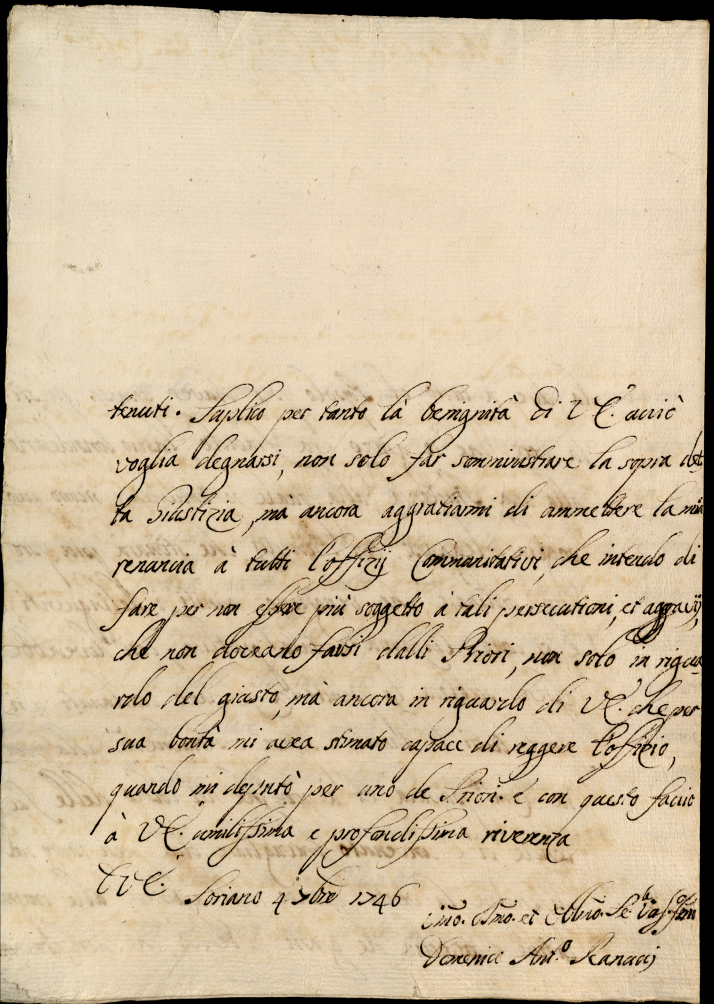 tenuti. Suplico per tanto la benignità di V. E. acciò
voglia degnarsi, non solo far somministrare la sopra det-
ta Giustizia, ma ancora aggratiarmi di ammettere la mia
renuncia à tutti l'offizij Communitativi, che intendo di
fare, per non essere più soggetto à tali persecutioni, et aggravij,
che non doveano farsi dalli Priori, non solo in rigua-
rdo del giusto, mà ancora in riguardo di V. E. che per
sua bontà mi avea stimato capace di reggere l'offizio,
quando mi deputò per uno de Priori. e con questo faccio
à V. E. umilissima e profondissima riverenza
Di V. E.
Soriano 4 7bre 1746
Umo. Dmo. et Obmo. Se.
Domenico Ant.o Ranucci